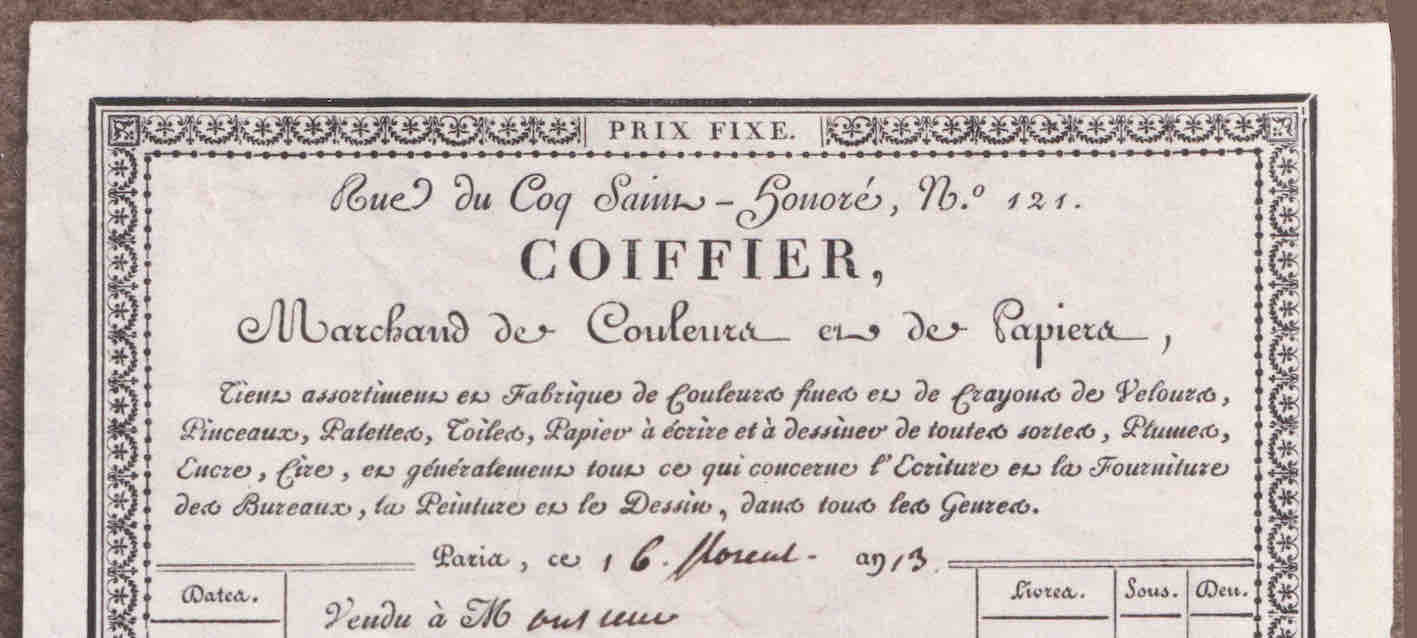 PRIX FIXE.
Rue du Coq Saint-Honoré, N.º 121.
COIFFIER,
Marchand de Couleurs et de Papiers,
Tient assortiment et Fabrique de Couleurs fines et de Crayons de Velours,
Pinceaux, Palettes, Toiles, Papier à écrire et à dessiner de toutes sortes, Plumes,
Encre, Cire, et généralement tout ce qui concerne l'Ecriture et la Fourniture
des Bureaux, la Peinture et le Dessin, dans tous les Genres.
Paris, ce 16. floreal - an 13
Dates. Livres. Sous. Den.
Vendu à Monsieur